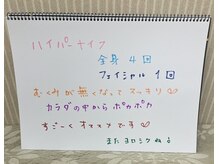 ハイパーナイフ
全身 4回
フェイシャル 1回
むくみが無くなって スッキリ♡
カラダの中から ポカポカ
すごーく オススメ です♡
また ヨロシクねっ